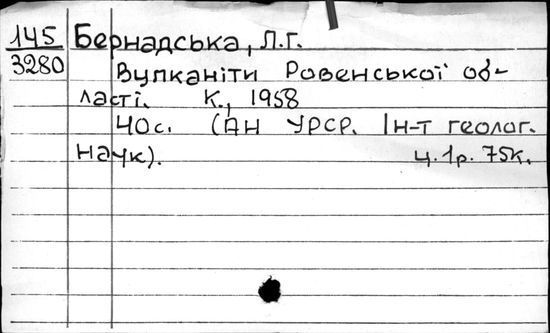 145 Бернадська, Л.Г.
3280 Вулканіти Ровенської об-
ласті. К., 1958
40с. (АН УРСР. Ін-т геолог.
наук). ц. 1р. 75к.